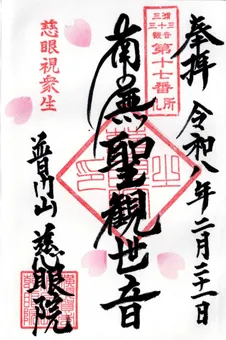 奉拝 令和八年二月二十一日
第十七番
南無聖観世音
慈眼視衆生
普門山 慈眼院